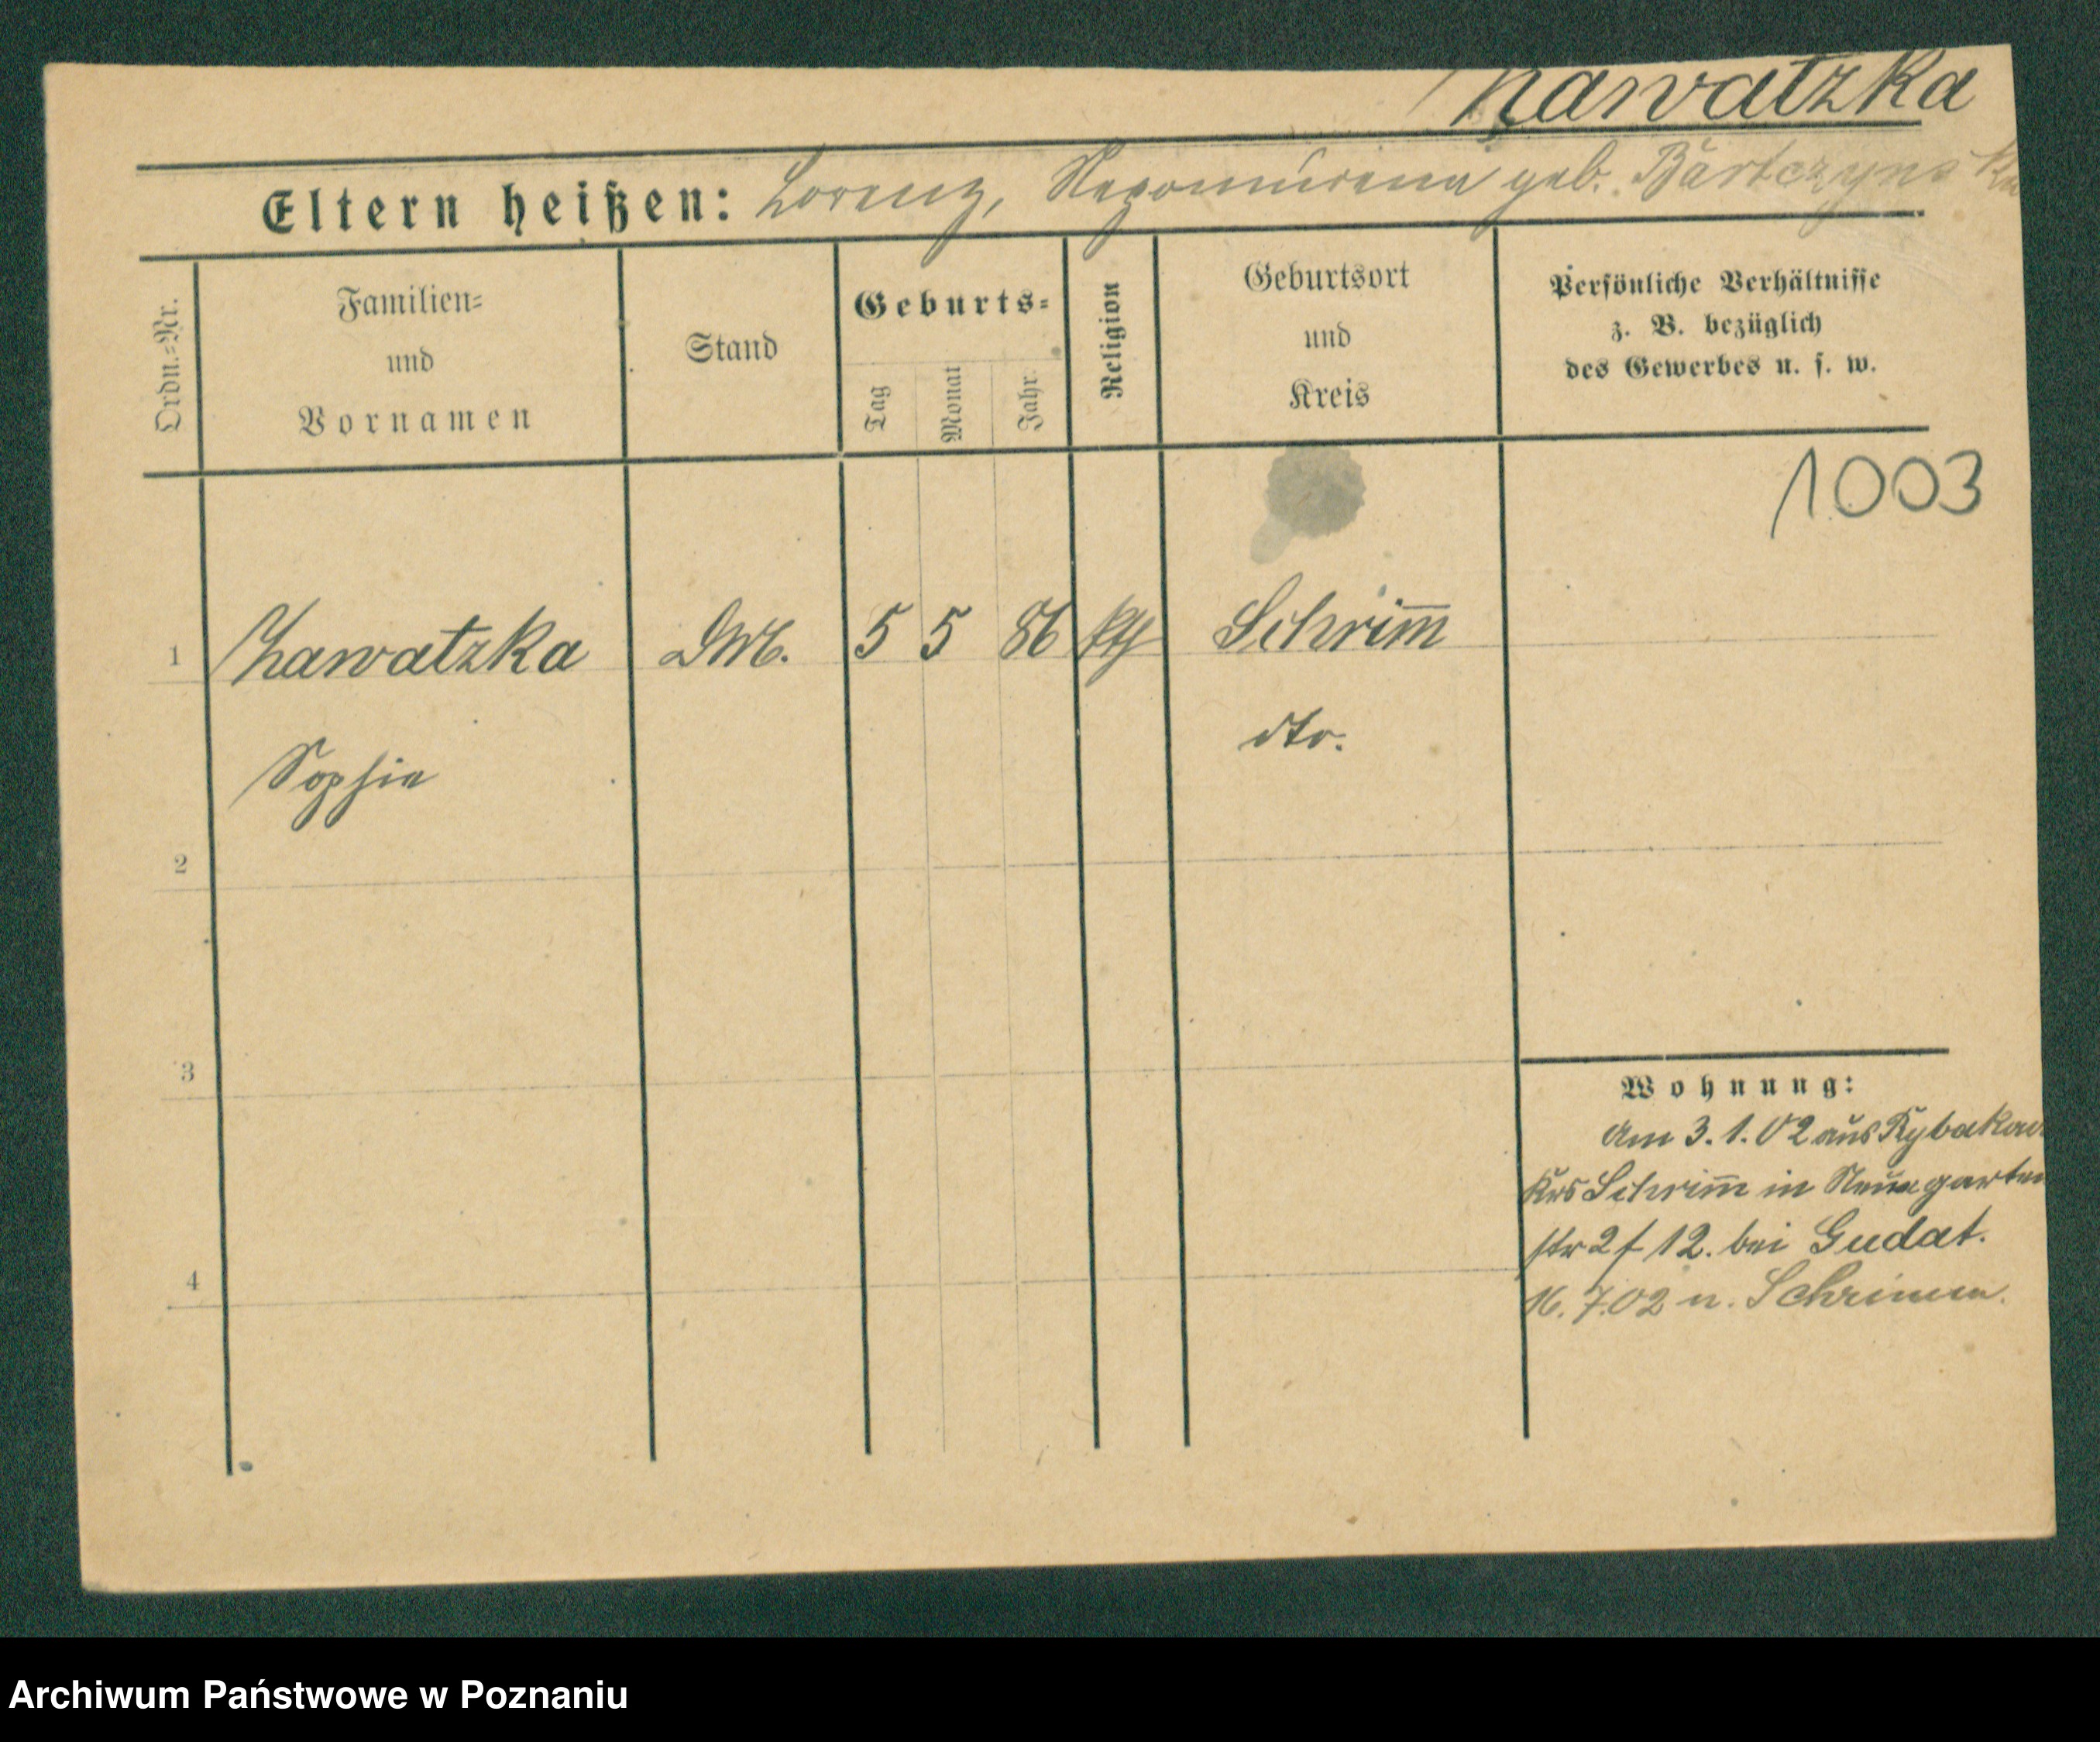 Zawatzka
Eltern heißen: Lorenz, Nepomucena geb. Bartczynska
Ordn.=Nr.
Familien=
und
Vornamen
Stand
Geburts=
Tag
Monat
Jahr
Religion
Geburtsort
und
Kreis
Persönliche Verhältnisse
z. B. bezüglich
des Gewerbes u. s. w.
1003
1 Zawatzka 5 5 86 kth Schrim̅
Sophie dto.
2
3
4
Wohnung:
Am 3.1.02 aus Rybakow
Krs Schrim̅ in Neue garten
str 12. bei Gudat.
16.7.02 n. Schrimm.
Archiwum Państwowe w Poznaniu